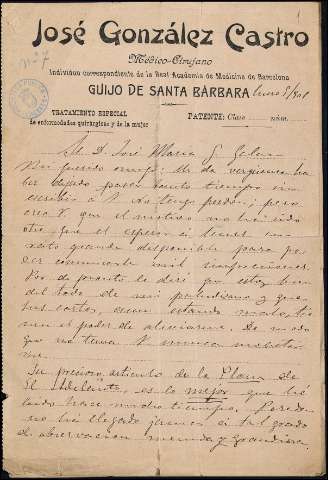 José González Castro
Médico-Cirujano
Individuo correspondiente de la Real Academia de Medicina de Barcelona
GUIJO DE SANTA BÁRBARA Enero 5/901
TRATAMIENTO ESPECIAL
de enfermedades quirúrgicas y de la mujer
PATENTE: Clase núm.
Sr. D. José María G. Galán
Mi querido amigo: Me da vergüenza ha
ber dejado pasar tanto tiempo sin
escribir a V. No tengo perdón; pero
crea V. que el motivo no ha sido
otro que el esperar si tienes un
rato grande disponible para po
der comunicarle mil impresiones.
Por de pronto le diré que estoy bien
del todo de mi paludismo y que
sus cartas, aun estando malo, tie
nen el poder de aliviarme. De modo
que no tema V. nunca molestar
me.
Su precioso artículo de la Plana de
El Adelanto, es lo mejor que he
leído hace mucho tiempo. Pereda
no ha llegado jamás a tal grado
de observación menuda y grandiosa.